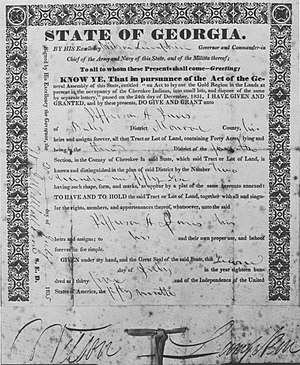 STATE OF GEORGIA.
BY HIS Excellency Wilson Lumpkin Governor and Commander-in
Chief of the Army and Navy of this State, and of the Militia thereof;
To all to whom these Presents shall come—Greeting:
KNOW YE, That in pursuance of the Act of the Ge-
neral Assembly of this State, entitled "an Act to lay out the Gold Region in the Lands at
present in the occupancy of the Cherokee Indians, into small lots, and dispose of the same
by separate lottery," passed on the 24th day of December, 1831, I HAVE GIVEN AND
GRANTED, and by these presents, DO GIVE AND GRANT unto
Jefferson H. Jones
District County,
heirs and assigns forever, all that Tract or Lot of Land, containing Forty Acres, lying and
being in the Third District of the
Section, in the County of Cherokee in said State, which said Tract or Lot of Land, is
known and distinguished in the plan of said District by the Number two
having such shape, form, and marks, as appear by a plat of the same hereunto annexed:
TO HAVE AND TO HOLD the said Tract or Lot of Land, together with all and singu-
lar the rights, members, and appurtenances thereof, whatsoever, unto the said
Jefferson H. Jones
heirs and assigns; to and their own proper use, and behoof
forever in fee simple.
GIVEN under my hand, and the Great Seal of the said State, this
day of July in the year eighteen hun-
dred and thirty and of the Independence of the United
States of America, the fifty
Signed by His Excellency the Governor
S. E. D.